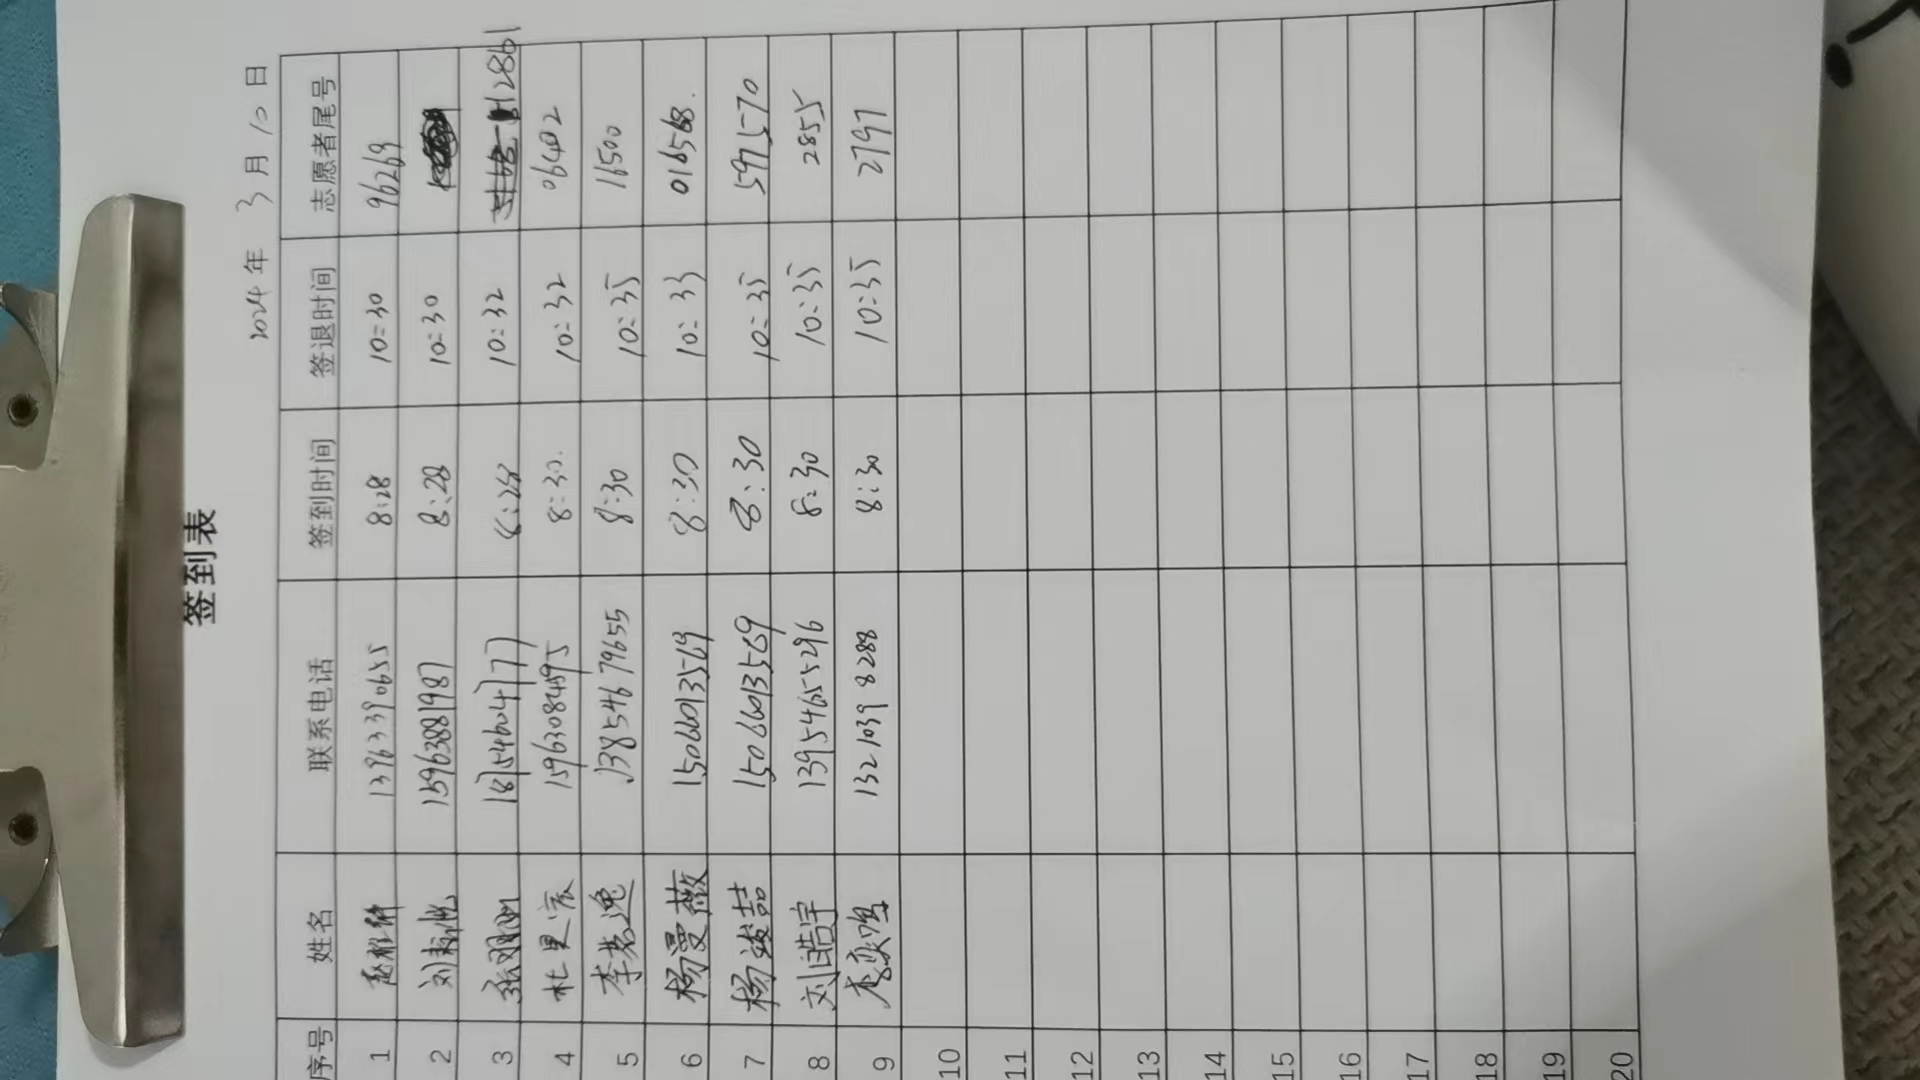 签到表
2024年 3月10日
序号 姓名 联系电话 签到时间 签退时间 志愿者尾号
1 13963390655 8:28 10:30 96269
2 15963881987 8:28 10:30
3 18154604177 8:28 10:32 12861
4 杜昱宸 15963084595 8:30. 10:32 06402
5 李若逸 13854679655 8:30 10:35 16500
6 杨曼薇 15066013569 8:30 10:33 016568.
7 杨竣喆 15066013569 8:30 10:35 597570
8 刘皓宇 13954655296 8:30 10:35 2855
9 李奕鸣 13210398288 8:30 10:35 2797
10
11
12
13
14
15
16
17
18
19
20